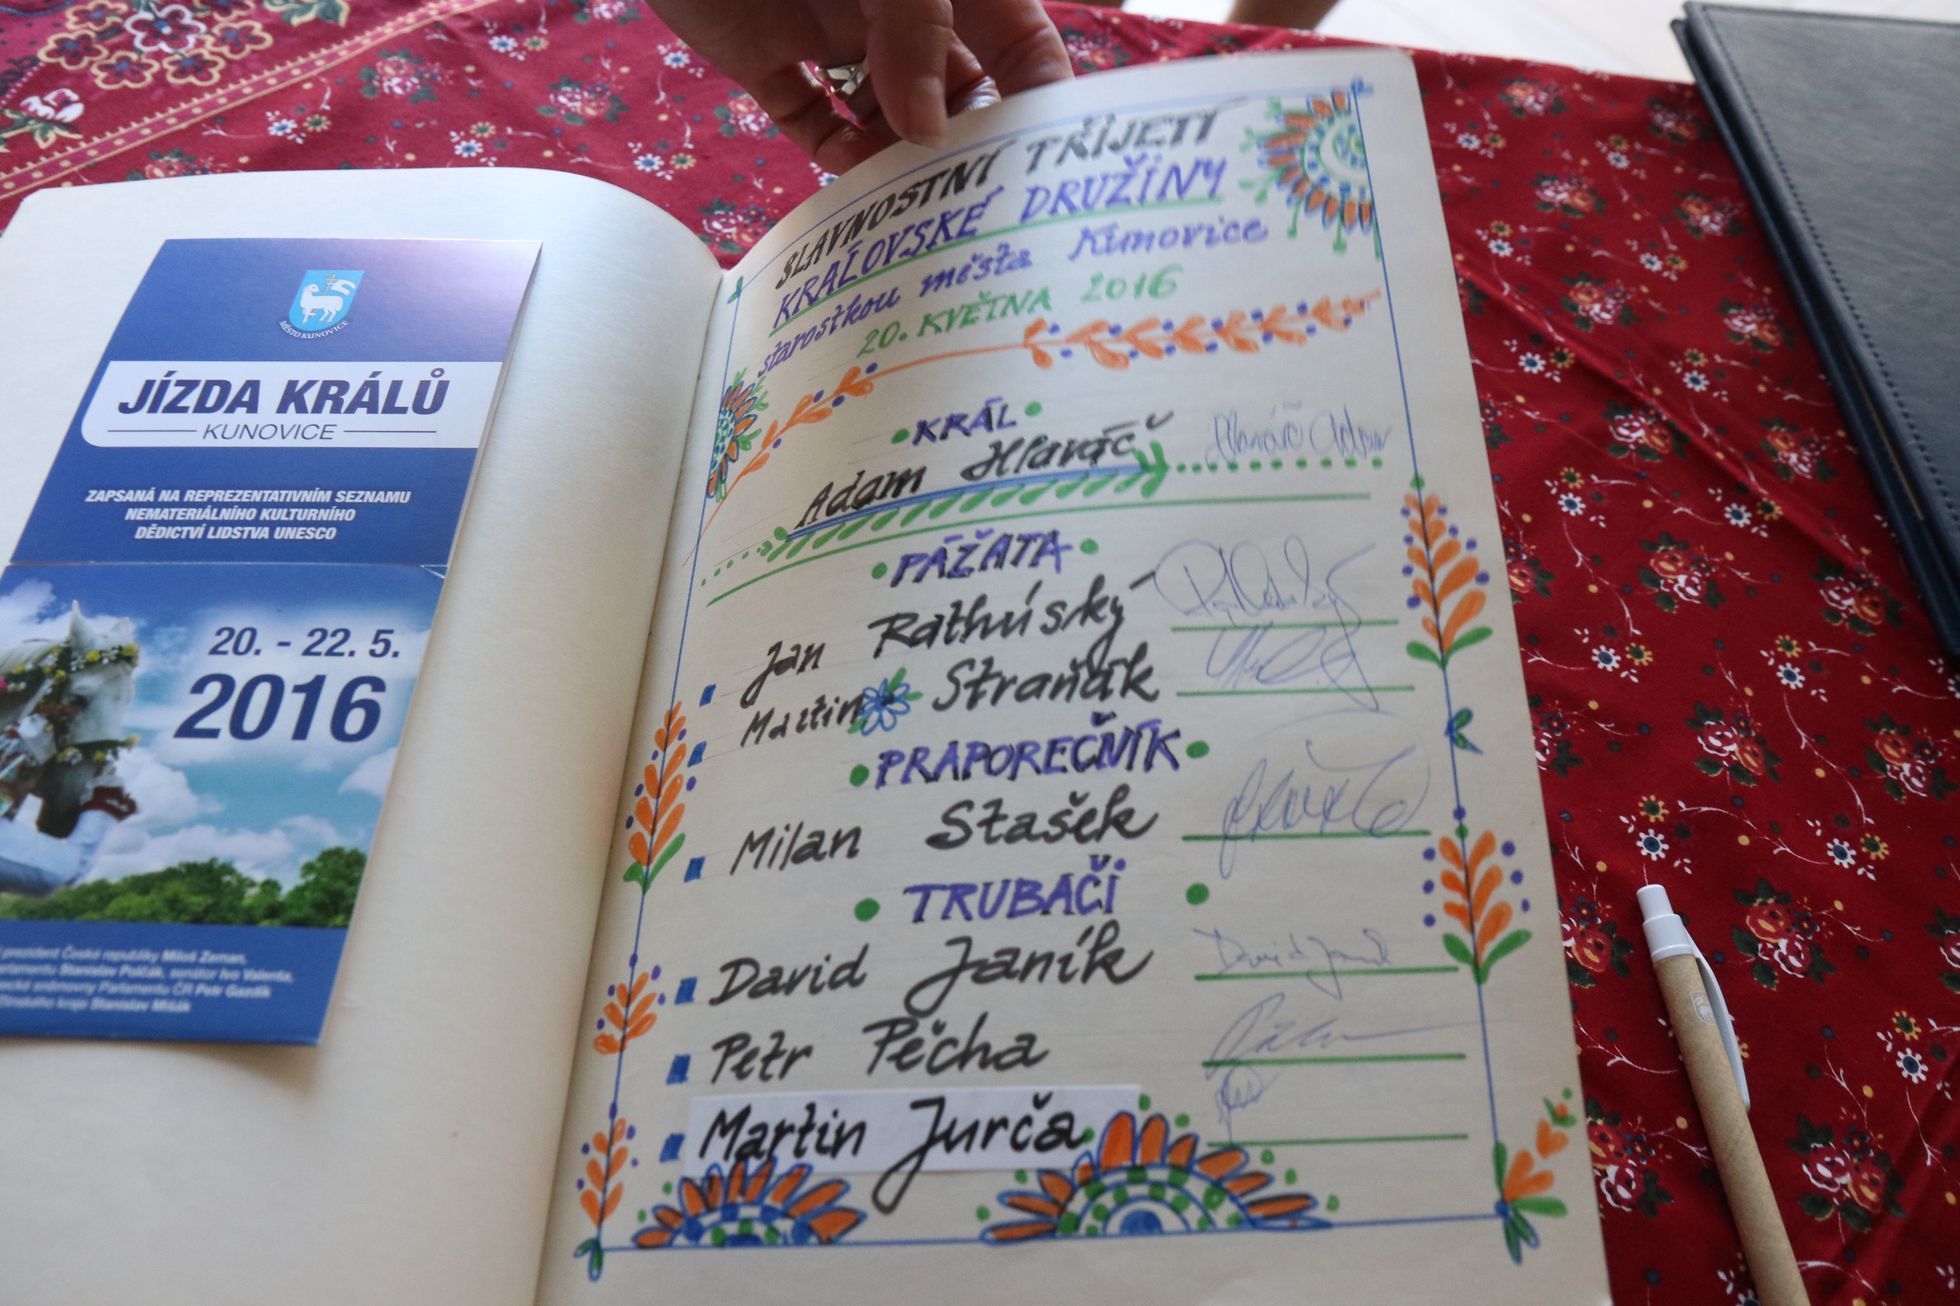 MĚSTO KUNOVICE
JÍZDA KRÁLŮ
KUNOVICE
ZAPSANÁ NA REPREZENTATIVNÍM SEZNAMU
NEMATERIÁLNÍHO KULTURNÍHO
DĚDICTVÍ LIDSTVA UNESCO
20. - 22. 5.
2016
prezident České republiky Miloš Zeman,
Stanislav Polčák, senátor Ivo Valenta,
sněmovny Parlamentu ČR Petr Gazdík
kraje Stanislav Mišák
SLAVNOSTNÍ PŘIJETÍ
KRÁLOVSKÉ DRUŽINY
starostkou města Kunovice
20. KVĚTNA 2016
KRÁL
Adam Hlaváč Hlaváč Adam
PÁŽATA
Jan Rathúský
Martin Straňák
PRAPOREČNÍK
Milan Stašek
TRUBAČI
David Janík David Janík
Petr Pěcha
Martin Jurča